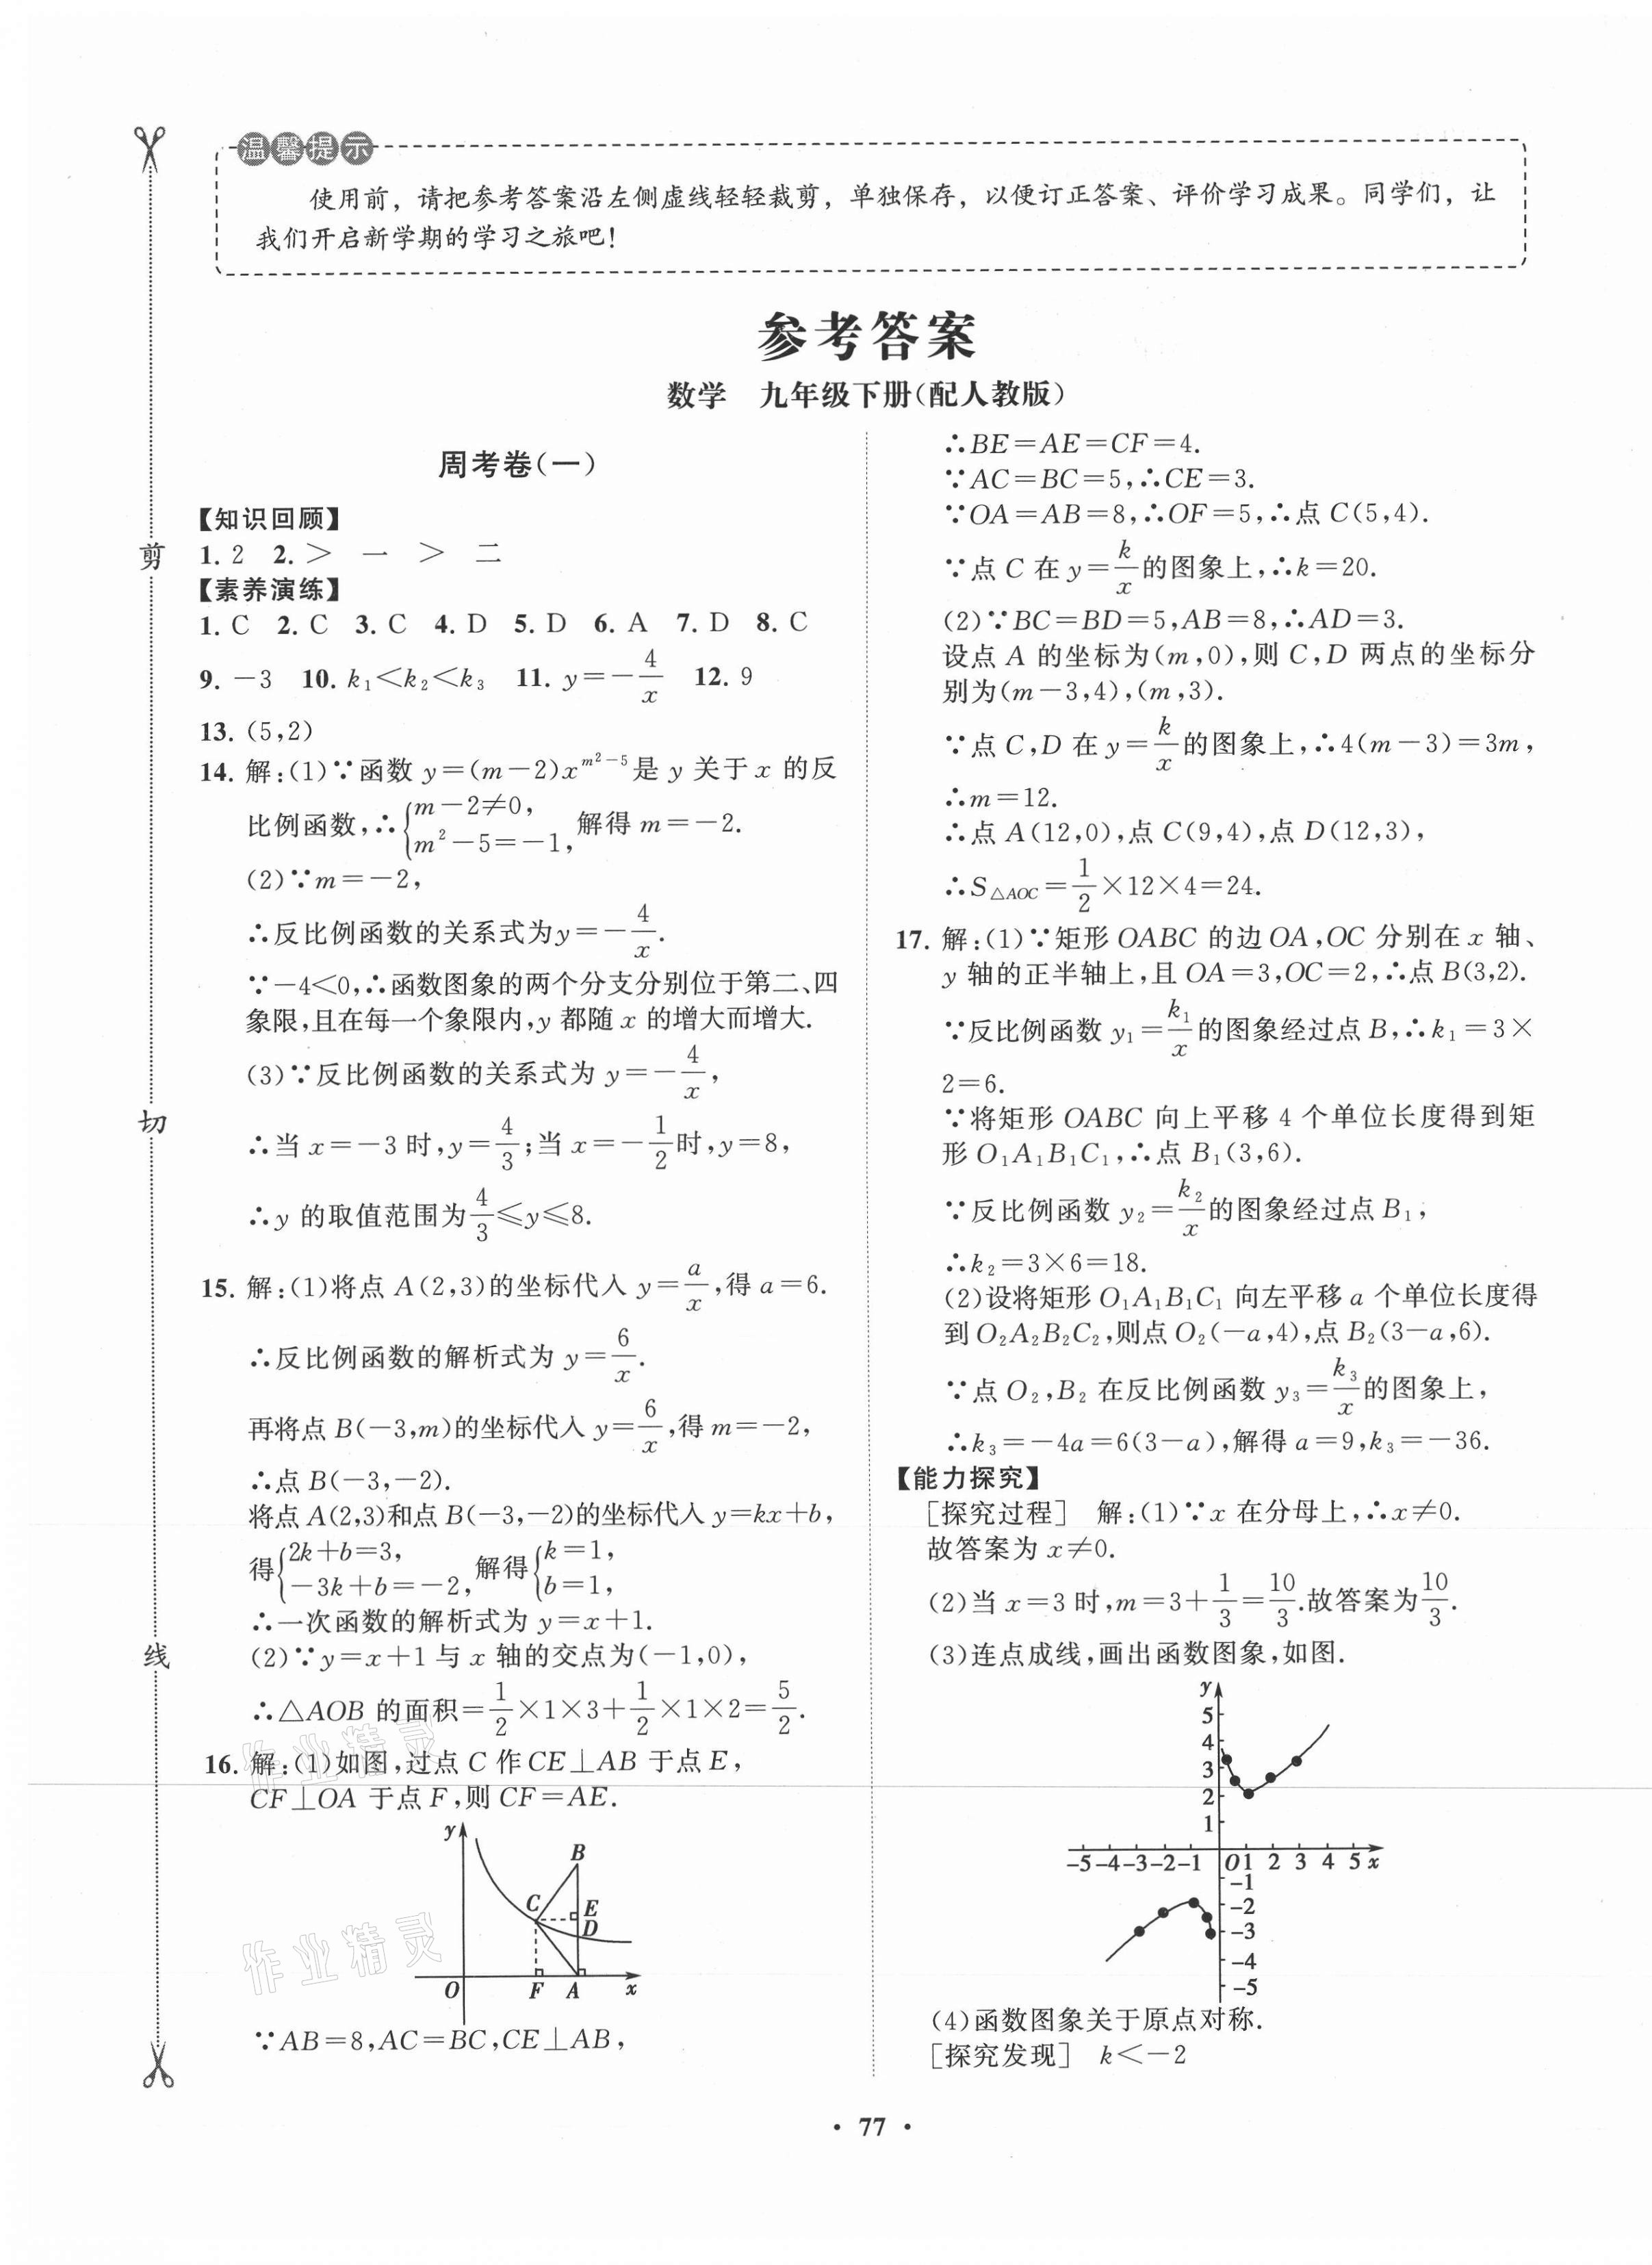 温馨提示
使用前，请把参考答案沿左侧虚线轻轻裁剪，单独保存，以便订正答案、评价学习成果。同学们，让
我们开启新学期的学习之旅吧！
参考答案
数学 九年级下册(配人教版)
剪
切
线
周考卷(一)
【知识回顾】
1. 2 2. ＞ 一 ＞ 二
【素养演练】
1. C 2. C 3. C 4. D 5. D 6. A 7. D 8. C
9. －3 10. k₁＜k₂＜k₃ 11. y＝－4/x 12. 9
13. (5,2)
14. 解:(1)∵函数 y＝(m－2)x^(m²－5)是 y 关于 x 的反
比例函数,∴{m－2≠0, m²－5＝－1, 解得 m＝－2.
(2)∵m＝－2,
∴反比例函数的关系式为y＝－4/x.
∵－4＜0,∴函数图象的两个分支分别位于第二、四
象限,且在每一个象限内,y 都随 x 的增大而增大.
(3)∵反比例函数的关系式为 y＝－4/x,
∴当 x＝－3 时,y＝4/3;当 x＝－1/2时,y＝8,
∴y 的取值范围为4/3≤y≤8.
15. 解:(1)将点 A(2,3)的坐标代入 y＝a/x,得 a＝6.
∴反比例函数的解析式为 y＝6/x.
再将点 B(－3,m)的坐标代入 y＝6/x,得 m＝－2,
∴点 B(－3,－2).
将点 A(2,3)和点 B(－3,－2)的坐标代入 y＝kx＋b,
得{2k＋b＝3, －3k＋b＝－2, 解得{k＝1, b＝1,
∴一次函数的解析式为 y＝x＋1.
(2)∵y＝x＋1 与 x 轴的交点为(－1,0),
∴△AOB 的面积＝1/2×1×3＋1/2×1×2＝5/2.
16. 解:(1)如图,过点 C 作 CE⊥AB 于点 E,
CF⊥OA 于点 F,则 CF＝AE.
y
B
C
E
D
O F A x
∵AB＝8,AC＝BC,CE⊥AB,
∴BE＝AE＝CF＝4.
∵AC＝BC＝5,∴CE＝3.
∵OA＝AB＝8,∴OF＝5,∴点 C(5,4).
∵点 C 在 y＝k/x的图象上,∴k＝20.
(2)∵BC＝BD＝5,AB＝8,∴AD＝3.
设点 A 的坐标为(m,0),则 C,D 两点的坐标分
别为(m－3,4),(m,3).
∵点 C,D 在 y＝k/x的图象上,∴4(m－3)＝3m,
∴m＝12.
∴点 A(12,0),点 C(9,4),点 D(12,3),
∴S△AOC＝1/2×12×4＝24.
17. 解:(1)∵矩形 OABC 的边 OA,OC 分别在 x 轴、
y 轴的正半轴上,且 OA＝3,OC＝2,∴点 B(3,2).
∵反比例函数 y₁＝k₁/x的图象经过点 B,∴k₁＝3×
2＝6.
∵将矩形 OABC 向上平移 4 个单位长度得到矩
形 O₁A₁B₁C₁,∴点 B₁(3,6).
∵反比例函数 y₂＝k₂/x的图象经过点 B₁,
∴k₂＝3×6＝18.
(2)设将矩形 O₁A₁B₁C₁ 向左平移 a 个单位长度得
到 O₂A₂B₂C₂,则点 O₂(－a,4),点 B₂(3－a,6).
∵点 O₂,B₂ 在反比例函数 y₃＝k₃/x的图象上,
∴k₃＝－4a＝6(3－a),解得 a＝9,k₃＝－36.
【能力探究】
[探究过程] 解:(1)∵x 在分母上,∴x≠0.
故答案为 x≠0.
(2)当 x＝3 时,m＝3＋1/3＝10/3.故答案为10/3.
(3)连点成线,画出函数图象,如图.
y
5
4
3
2
1
-5 -4 -3 -2 -1 O 1 2 3 4 5 x
-1
-2
-3
-4
-5
(4)函数图象关于原点对称.
[探究发现] k＜－2
作业精灵
作业精灵
· 77 ·